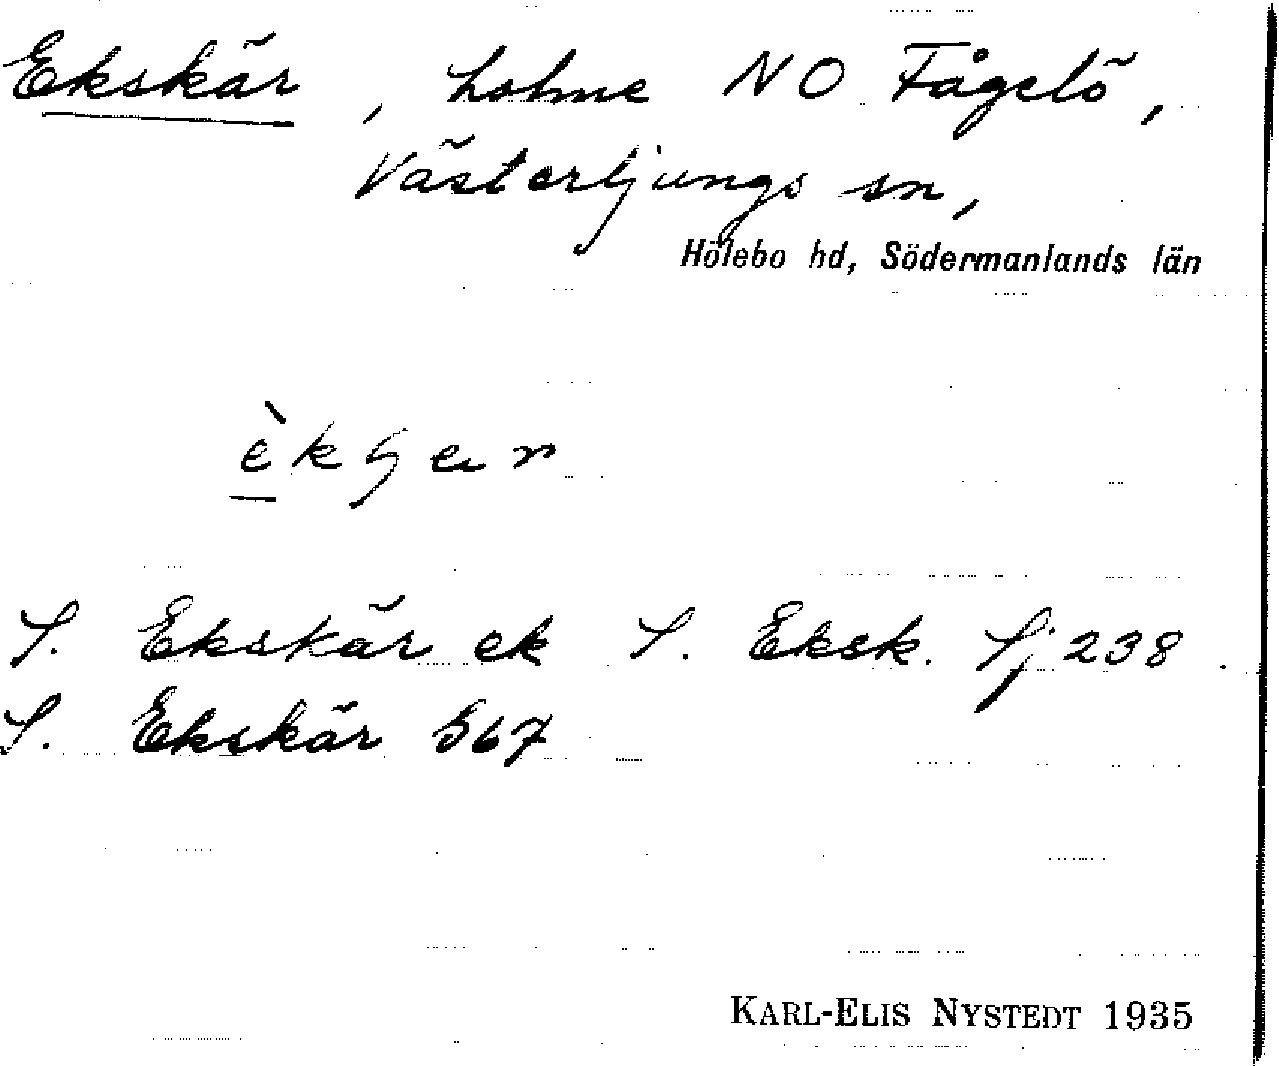 Ekskär, holme NO Fågelö,
Västerljungs sn,
Hölebo hd, Södermanlands län
S. Ekskär ek S. Eksk. Sj 238
S. Ekskär 567
KARL-ELIS NYSTEDT 1935